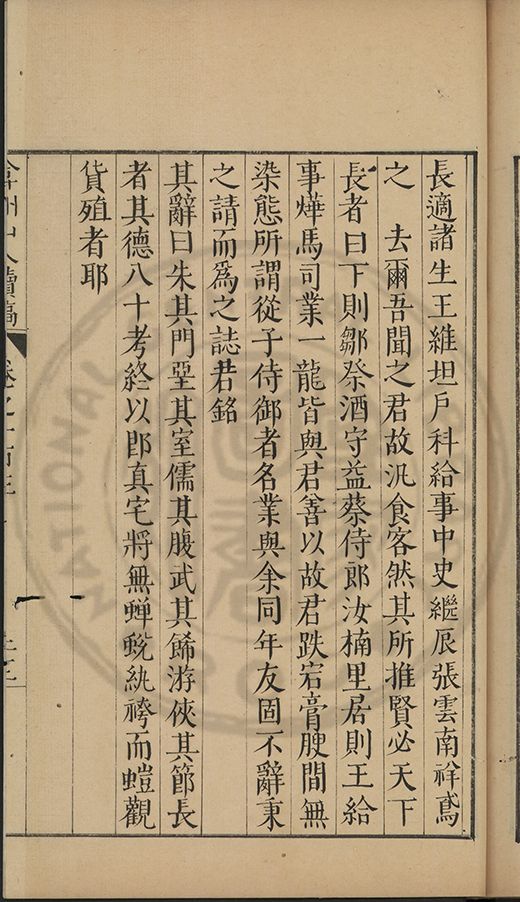 長適諸生王維坦戶科給事中史繼辰張雲南祥鳶
之 去爾吾聞之君故汎食客然其所推賢必天下
長者曰下則鄒祭酒守益蔡侍郎汝楠里居則王給
事燁馬司業一龍皆與君善以故君跌宕膏腴間無
染態所謂從子侍御者名業與余同年友固不辭秉
之請而爲之誌君銘
其辭曰朱其門堊其室儒其腹武其餙游俠其節長
者其德八十考終以卽真宅將無蟬蛻紈袴而螘觀
貨殖者耶
弇州山人續稿 卷之一百三